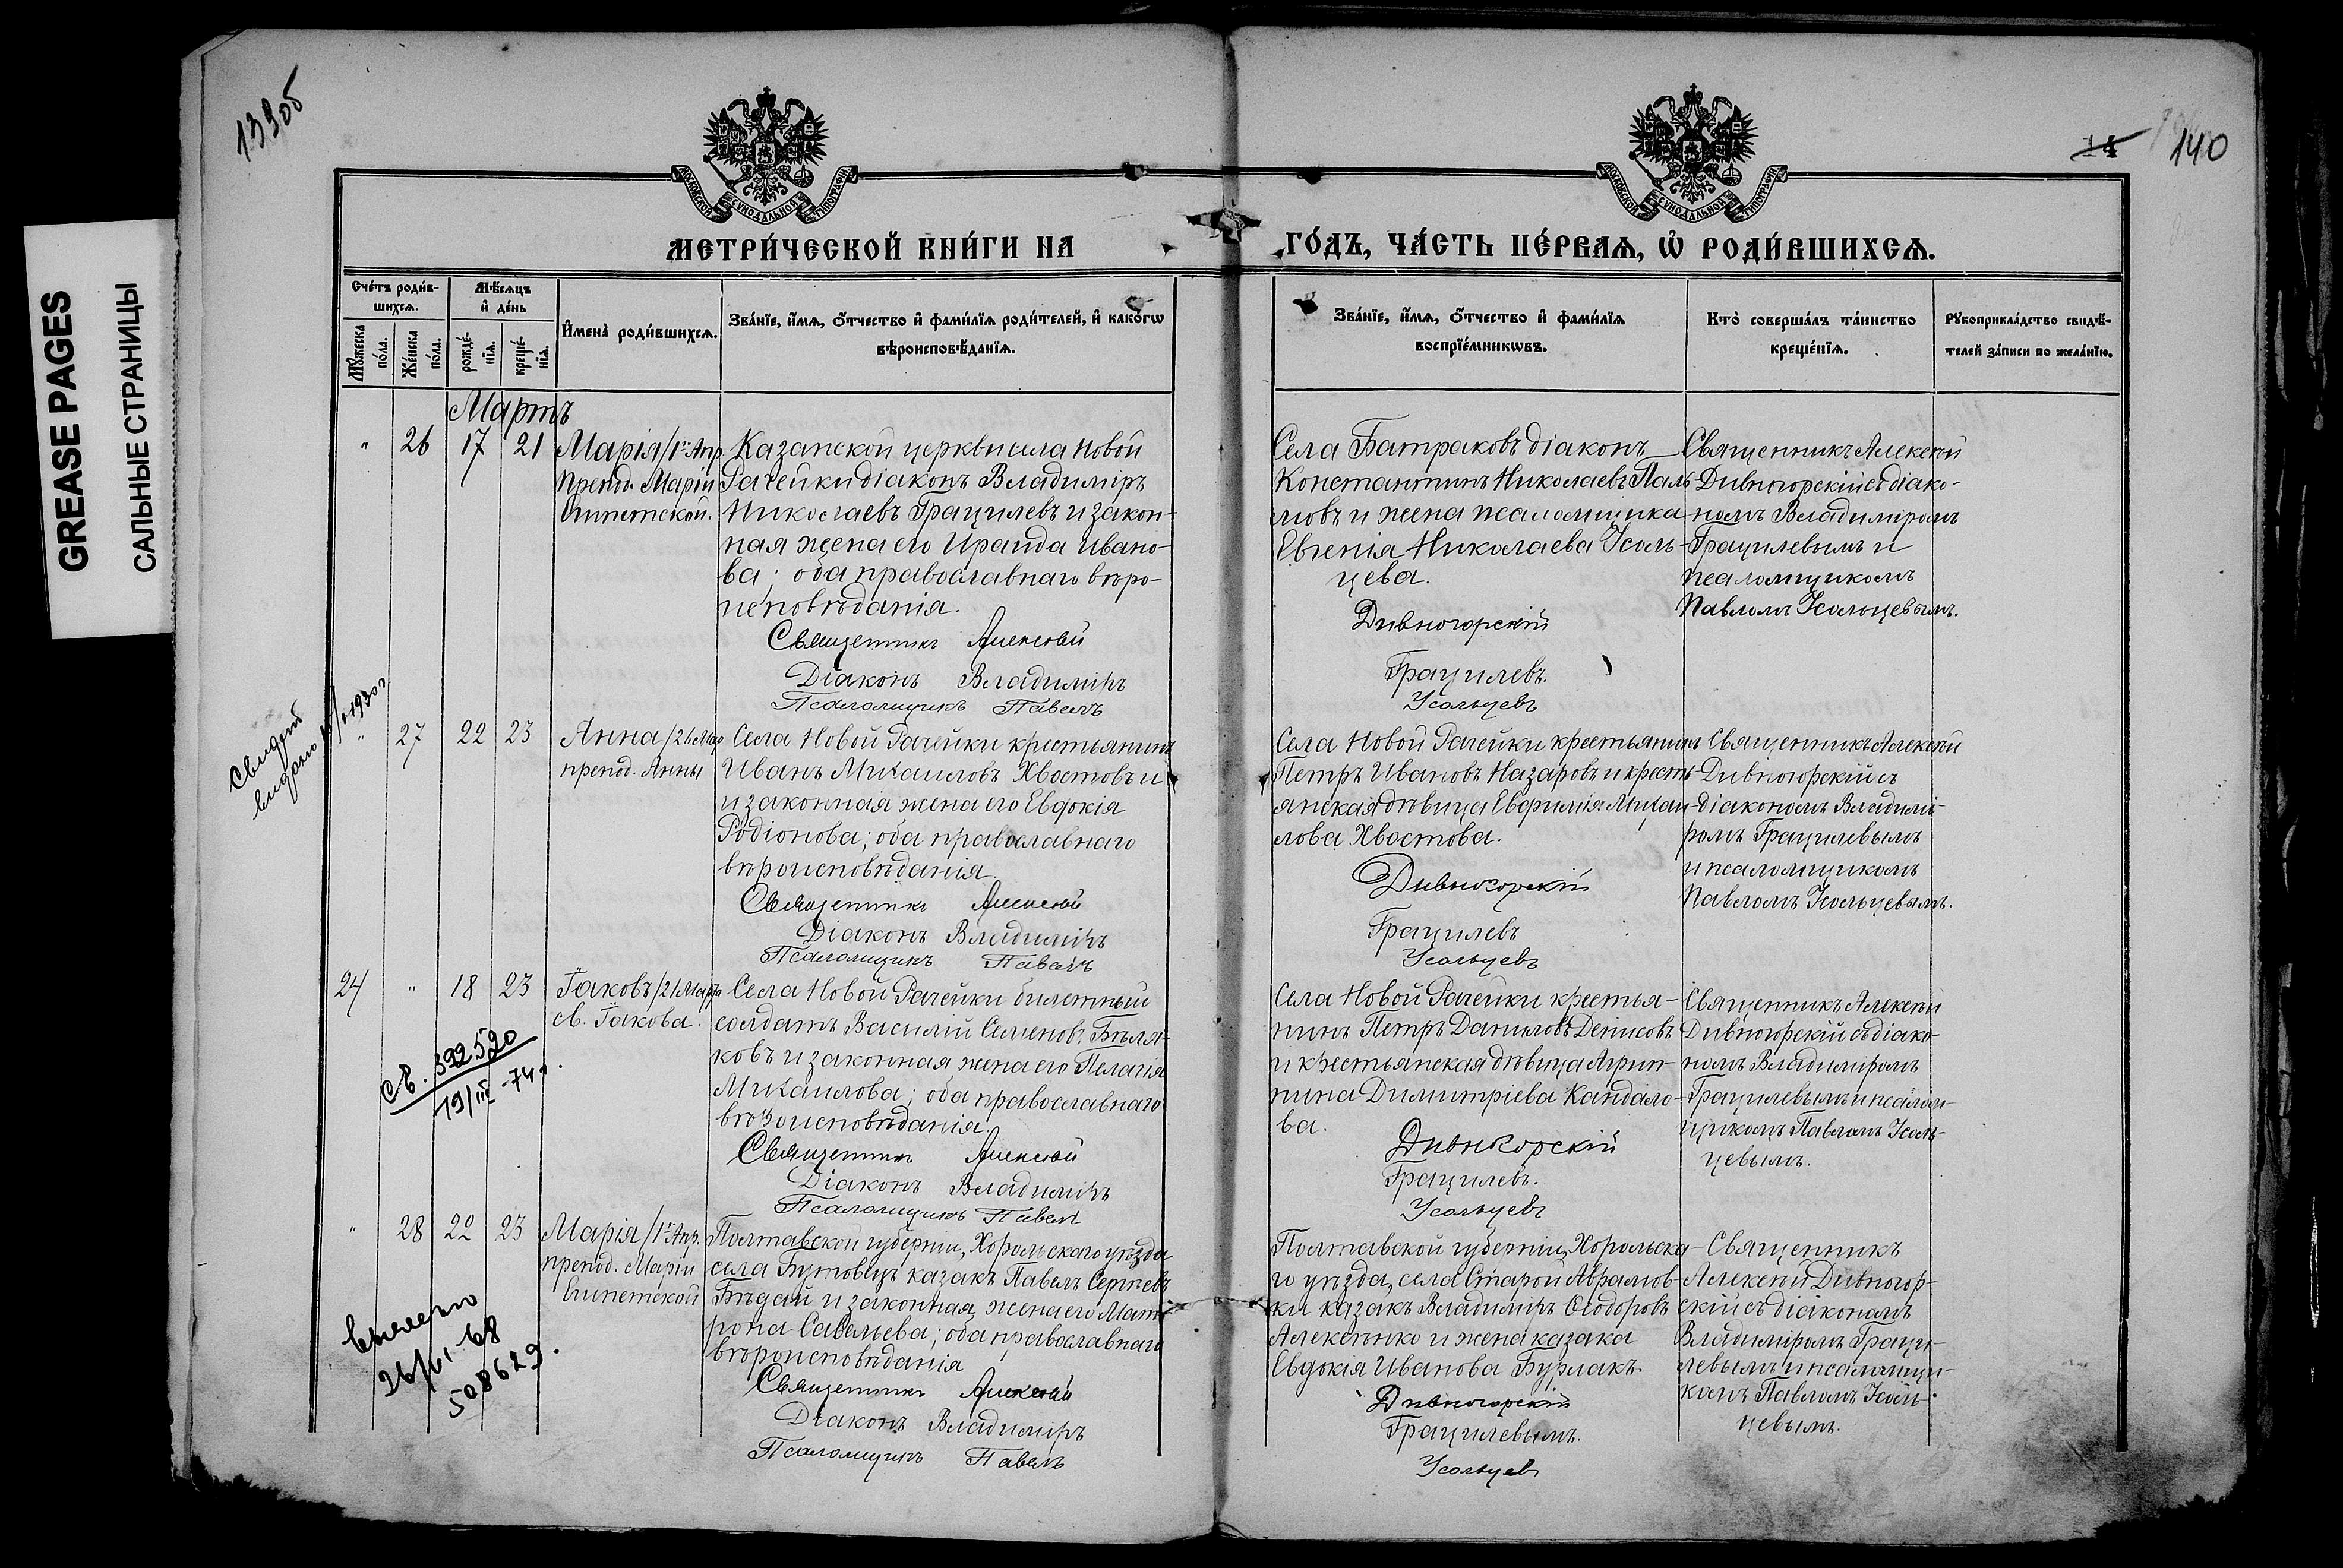 GREASE PAGES
САЛЬНЫЕ СТРАНИЦЫ
139об
14 140
МОСКОВСКОЙ СѴНОДАЛЬНОЙ ТИПОГРАФІИ
МОСКОВСКОЙ СѴНОДАЛЬНОЙ ТИПОГРАФІИ
МЕТРИ́ЧЕСКОЙ КНИ́ГИ НА
ГО́ДЪ, ЧА́СТЬ ПЕ́РВАѦ, Ѡ҆ РОДИ́ВШИХСѦ.
Сче́тъ роди́в-
шихсѧ.
Мꙋ́жеска по́ла.
Же́нска по́ла.
Мѣ́сѧцъ
и҆ де́нь
рожде́-
нїѧ.
креще́-
нїѧ.
И҆мена̀ роди́вшихсѧ.
Зва́нїе, и҆́мѧ, ѻ҆́тчество и҆ фами́лїѧ роди́телей, и҆ како́гѡ
вѣроисповѣ́данїѧ.
Зва́нїе, и҆́мѧ, ѻ҆́тчество и҆ фами́лїѧ
воспрїе́мникѡвъ.
Кто̀ соверша́лъ та́инство
креще́нїѧ.
Рꙋкоприкла́дство свидѣ́-
телей за́писи по жела́нїю.
Мартъ
" 26 17 21
Марія /1го Апр.
препод. Маріи
Египетской.
Казанской церкви села Новой
Рачейки діаконъ Владиміръ
Николаевъ Грацилевъ и закон-
ная жена его Ираида Ивано-
ва; оба православнаго вѣро-
исповѣданія.
Священникъ Алексѣй
Діаконъ Владиміръ
Псаломщикъ Павелъ
Села Батраковъ діаконъ
Константинъ Николаевъ Паль-
мовъ и жена псаломщика
Евгенія Николаева Усоль-
цева.
Дивногорскій
Грацилевъ.
Усольцевъ
Священникъ Алексѣй
Дивногорскій съ діако-
номъ Владиміромъ
Грацилевымъ и
псаломщикомъ
Павломъ Усольцевымъ.
Свидет
выдано
" 27 22 23
Анна /26 Мар
препод. Анны
Села Новой Рачейки крестьянинъ
Иванъ Михаиловъ Хвостовъ и
и законная жена его Евдокія
Родіонова; оба православнаго
вѣроисповѣданія.
Священникъ Алексѣй
Діаконъ Владиміръ
Псаломщикъ Павелъ
Села Новой Рачейки крестьянинъ
Петръ Ивановъ Назаровъ и кресть-
янская дѣвица Евфимія Михаи-
лова Хвостова.
Дивногорскій
Грацилевъ
Усольцевъ
Священникъ Алексѣй
Дивногорскій съ
діакономъ Владимі-
ромъ Грацилевымъ
и псаломщикомъ
Павломъ Усольцевымъ.
24 " 18 23
Іаковъ /21 Марта
св. Іакова.
св. 392520
19/III-74г.
Села Новой Рачейки билетный
солдатъ Василій Семеновъ Бѣля-
ковъ и законная жена его Пелагія
Михаилова; оба православнаго
вѣроисповѣданія.
Священникъ Алексѣй
Діаконъ Владиміръ
Псаломщикъ Павелъ
Села Новой Рачейки крестья-
нинъ Петръ Даниловъ Денисовъ
и крестьянская дѣвица Агрип-
пина Димитріева Кандало-
ва.
Дивногорскій
Грацилевъ.
Усольцевъ
Священникъ Алексѣй
Дивногорскій съ діако-
номъ Владиміромъ
Грацилевымъ и псалом-
щикомъ Павломъ Усоль-
цевымъ.
" 28 22 23
Марія /1го Апр.
препод. Маріи
Египетской
26/VI-68
508629.
Полтавской губерніи, Хорольскаго уѣзда
села Бутовецъ казакъ Павелъ Сергѣевъ
Бѣдай и законная жена его Мат-
рона Савельева; оба православнаго
вѣроисповѣданія
Священникъ Алексѣй
Діаконъ Владиміръ
Псаломщикъ Павелъ
Полтавской губерніи, Хорольска-
го уѣзда, села Старой Аврамов-
ки казакъ Владиміръ Ѳеодоровъ
Алексѣнко и жена казака
Евдокія Иванова Бурлакъ.
Дивногорскій
Грацилевымъ.
Усольцевъ
Священникъ
Алексѣй Дивногор-
скій съ діакономъ
Владиміромъ Граци-
левымъ и псаломщи-
комъ Павломъ Усоль-
цевымъ.